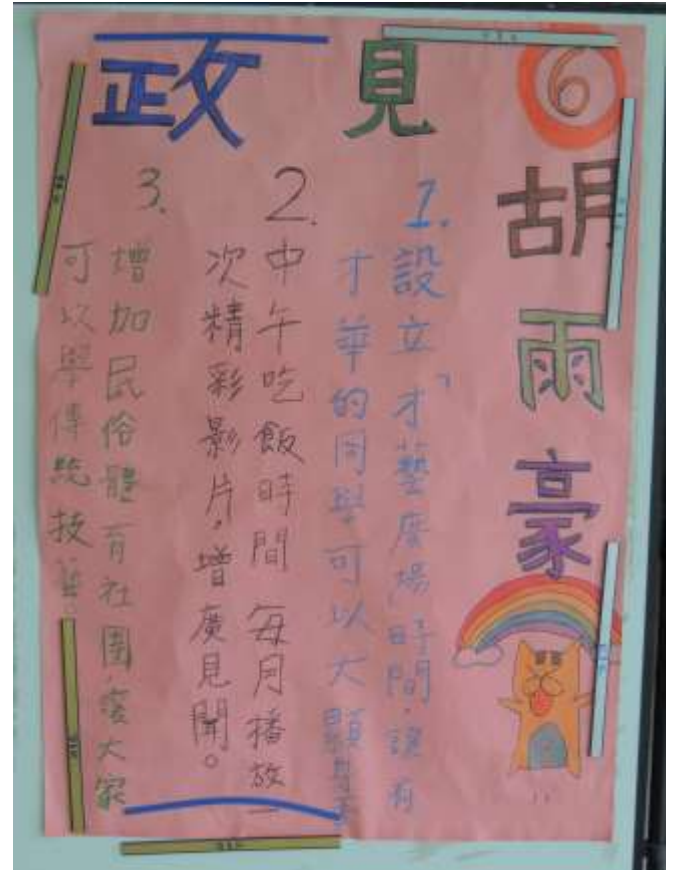 ⑥
胡雨豪
政見
1.
設立「才藝廣場」時間,讓有
才華的同學可以大顯身手
2.
中午吃飯時間 每月播放一
次精彩影片,增廣見聞。
3.
增加民俗體育社團,讓大家
可以學傳統技藝。